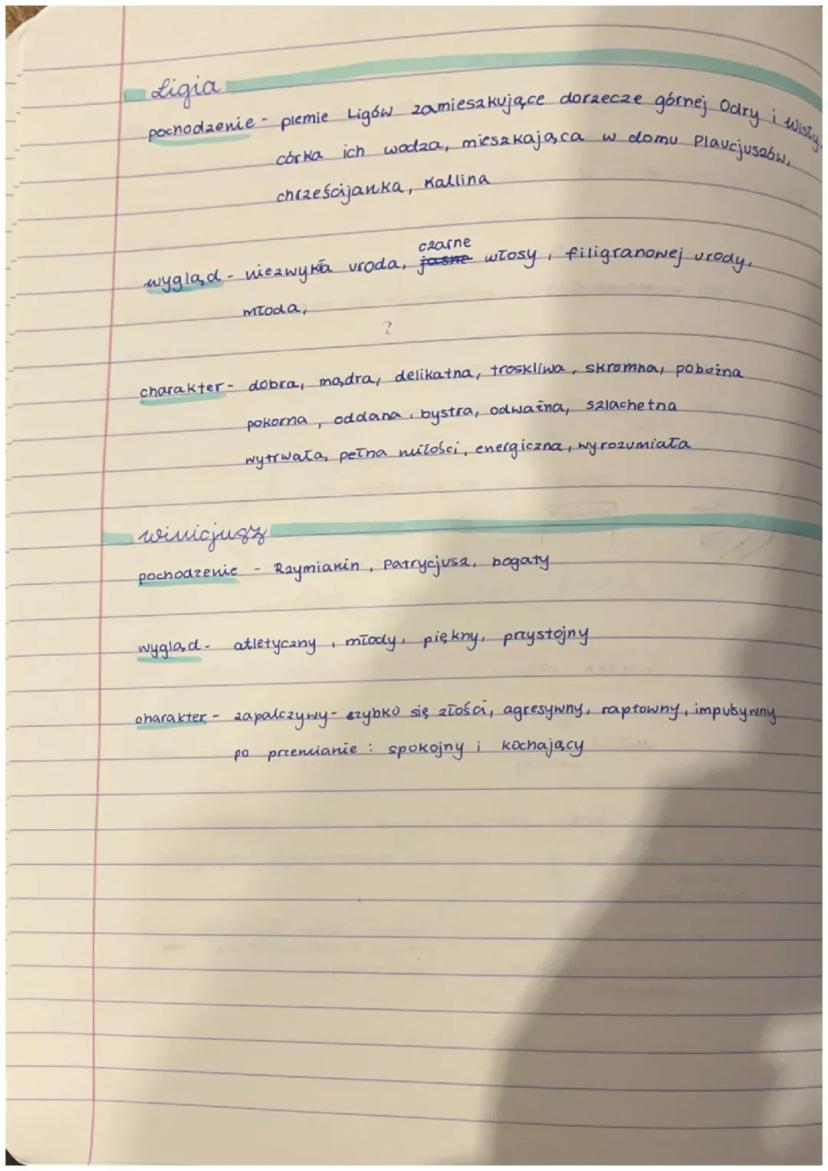 Ligia
pochodzenie - plemie Ligów zamieszkujące dorzecze górnej Odry i Wisły.
córka ich wodza, mieszkająca w domu Plaucjuszów,
chrześcijanka, Kallina
czarne
wygląd - niezwykła uroda, jasne włosy, filigranowej urody,
młoda,
?
charakter - dobra, mądra, delikatna, troskliwa, skromna, pobożna
pokorna, oddana, bystra, odważna, szlachetna
wytrwała, pełna miłości, energiczna, wyrozumiała
Winicjusz
pochodzenie - Rzymianin, Patrycjusz, bogaty
wygląd - atletyczny, młody, piękny, przystojny
charakter - zapalczywy - szybko się złości, agresywny, raptowny, impulsywny
po przemianie : spokojny i kochający